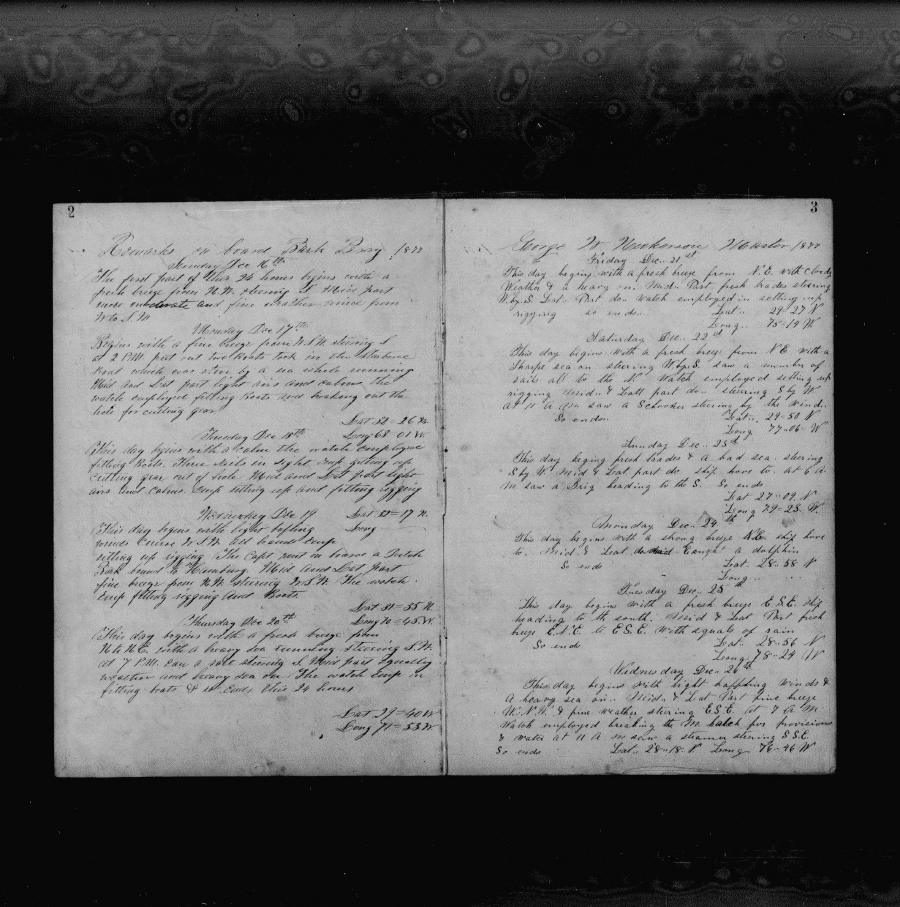 2
Remarks on board Bark 1877
Sunday Dec 16th
The first part of this 24 hours begins with a
fresh breeze from N.W. steering S. Mid part
more moderate and fine weather wind from
W to S.W
Monday Dec 17th
Begins with a fine breeze from W.S.W. steering S
at 2 P.M. put out two boats took in the
boat which was stove by a sea while running
Mid and Last part light airs and calms the
watch employed fitting boats and breaking out the
hole for cutting gear
Lat 32-26 N.
Tuesday Dec 18th Long 68 01 W.
This day begins with a calm the watch employed
fitting boats. Three sails in sight emp getting up
cutting gear out of hole. Mid and Last part light
airs and calms. Emp setting up and fitting rigging
Wednesday Dec 19 Lat 32=17 N.
This day begins with light baffling Long
winds Course W.S.W all hands emp
setting up rigging The Capt went on board a Dutch
Bark bound to Hamburg. Mid and Last part
fine breeze from N.W. steering W.S.W. The watch
emp fitting rigging and Boats
Lat 30=55 N.
Thursday Dec 20th Long 70=45 W.
This day begins with a fresh breeze from
N to N.E. with a heavy sea running steering S.W.
at 7 P.M. saw a sail steering S Mid part squally
weather and heavy sea on. The watch emp in
fitting boats &c So Ends this 24 hours
Lat 29=40 N
Long 71=53 W.
3
George W. Master 1877
Friday Dec. 21st
This day begins with a fresh breeze from N.E. with cloudy
Weather & a heavy sea Mid. Part fresh trades steering
W.by.S. Last Part do. Watch employed in setting up
rigging so ends. Lat.. 29-27 N
Long.. 75-19 W
Saturday Dec. 22nd
This day begins with a fresh breeze from N.E with a
Sharpe sea on steering W.by.S. saw a number of
sails all to the N. Watch employed setting up
rigging Mid. & Last part do. steering S by W
At 11 A M saw a Schooner steering by the wind.
So ends. Lat.. 29-50 N
Long 77-06 W
Sunday Dec. 23d
This day begins fresh trades & A bad sea. steering
S by W Mid & Last part do. ship hove to. at 6 A
M saw a Brig heading to the S. So ends
Lat 27-09. N
Long 79-25. W.
Monday Dec. 24th
This day begins with a strong breeze N.E. ship hove
to. Mid. & Last Caught a dolphin
So ends Lat. 28-58 N
Long..
Tuesday Dec. 25th
This day begins with a fresh breeze E.S.E. ship
heading to the south. Mid & Last Part fresh
breeze E.N.E. to E.S.E. with squals of rain
So ends Lat. 28-56 N
Long. 78-29 W
Wednesday Dec. 26th
This day begins with light baffling winds &
A heavy sea on. Mid. & Last Part fine breeze
W.N.W. & fine weather steering E.S.E. at 7 A M
Watch employed breaking the M hatch for provisions
& water at 11 A M saw a steamer steering S.S.E.
So ends Lat.. 28-18. N Long. 78-46 W